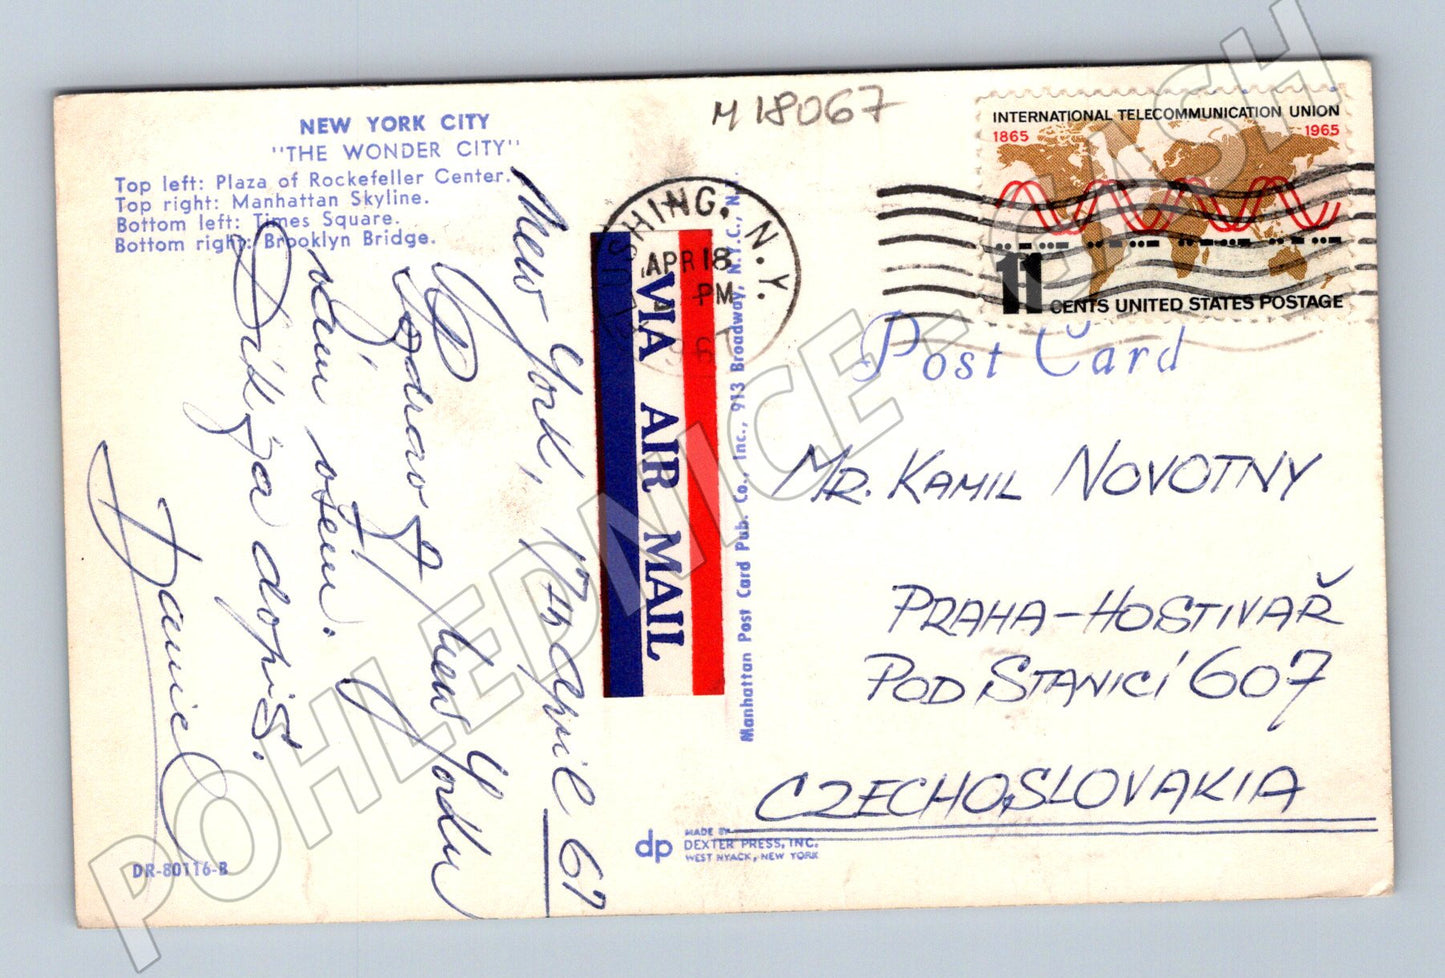 M 18067
NEW YORK CITY
"THE WONDER CITY"
Top left: Plaza of Rockefeller Center.
Top right: Manhattan Skyline.
Bottom left: Times Square.
Bottom right: Brooklyn Bridge.
INTERNATIONAL TELECOMMUNICATION UNION
1865 1965
11 CENTS UNITED STATES POSTAGE
FLUSHING, N.Y.
APR 18
PM
1967
VIA AIR MAIL
Post Card
New York, 17th april 67
Pozdrav z New Yorku
vám všem.
Dík za dopis.
Daniel
Manhattan Post Card Pub. Co., Inc., 913 Broadway, N.Y.C., N.Y.
MR. KAMIL NOVOTNY
PRAHA-HOSTIVAŘ
POD STANICÍ 607
CZECHOSLOVAKIA
dp MADE BY
DEXTER PRESS, INC.
WEST NYACK, NEW YORK
DR-80116-B
POHLEDNICE-CASH